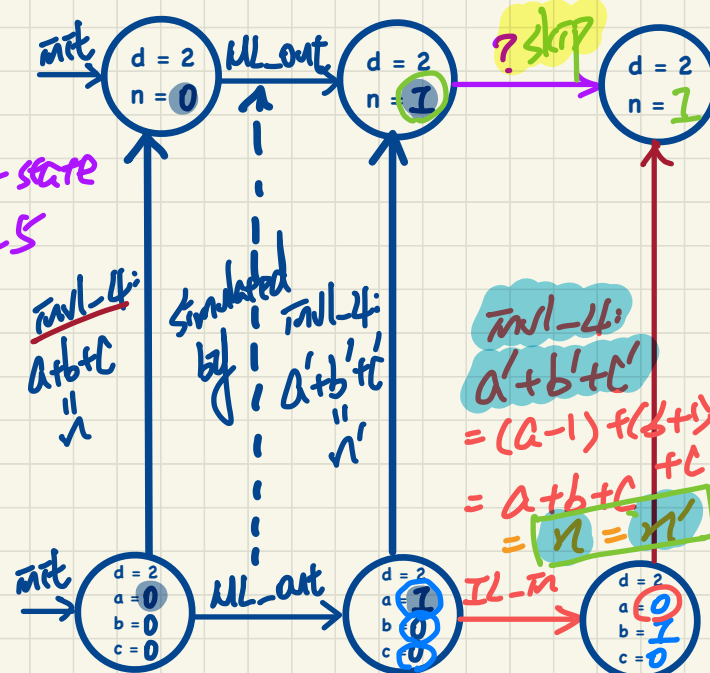 init
d = 2
n = 0
ML_out
d = 2
n = 1
? skip
d = 2
n = 1
-state
-5
inv1-4:
a+b+c
=
n
simulated
by
inv1-4:
a'+b'+c'
=
n'
inv1-4:
a'+b'+c'
= (a-1) + (b+1)
+c
= a+b+c
= n = n'
init
d = 2
a = 0
b = 0
c = 0
ML_out
d = 2
a = 1
b = 0
c = 0
IL_in
d = 2
a = 0
b = 1
c = 0